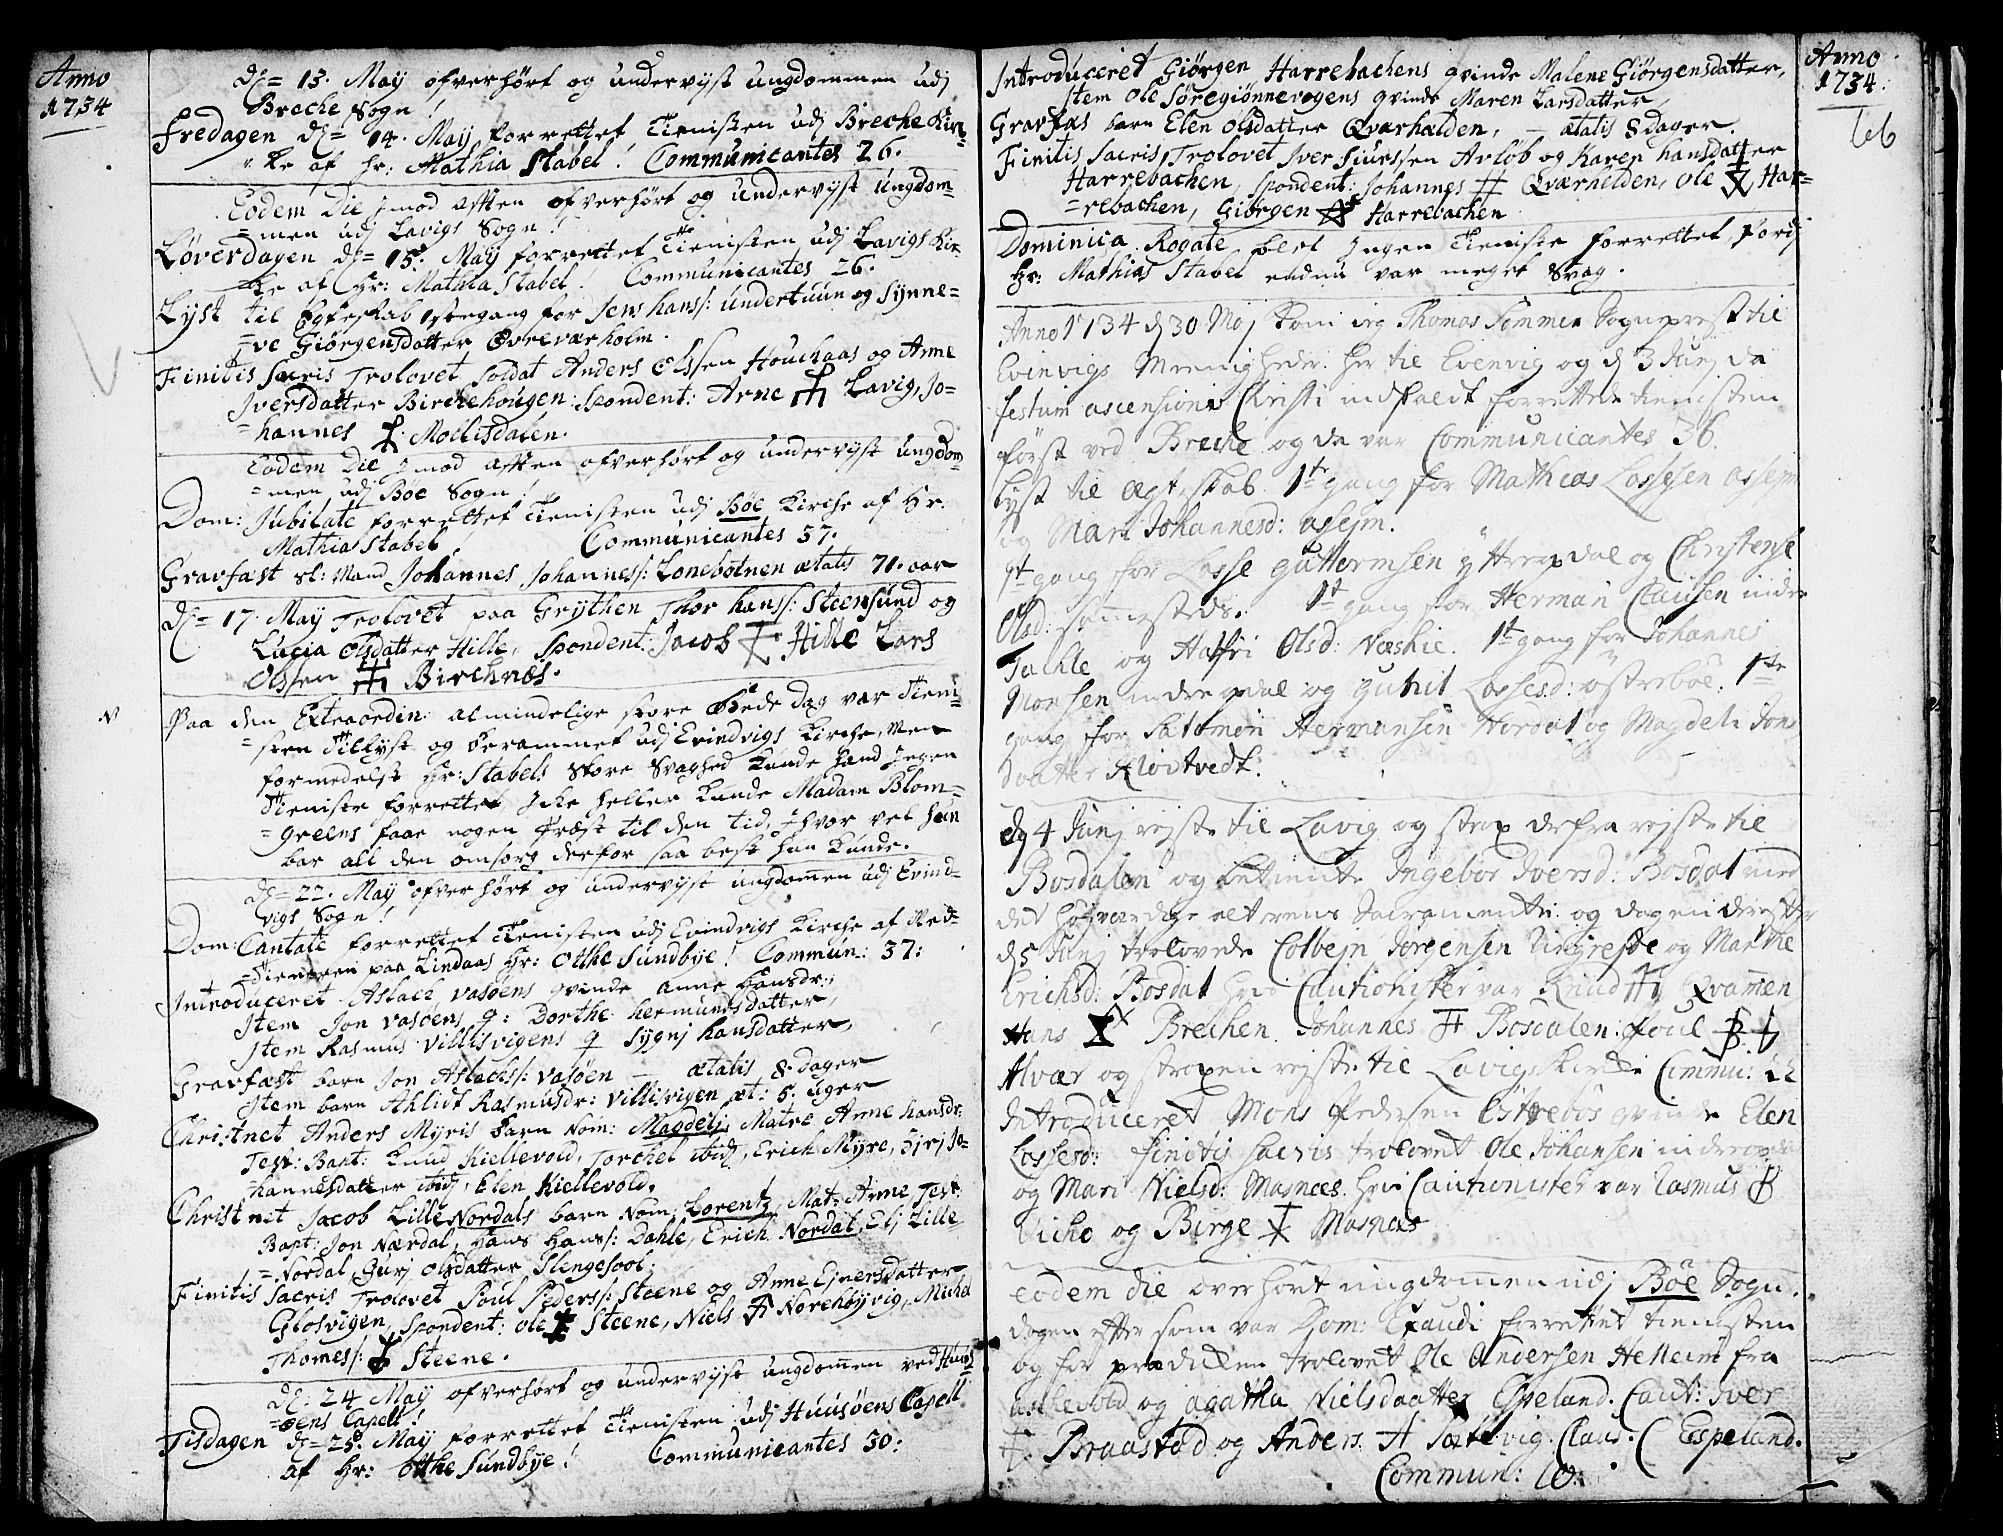 Anno
1734
de= 13. Maij ofverhört og underviist ungdommen udj
Breche Sogn!
Fredagen de= 14. Maij forrettet Tienisten udj Breche Kir-
ke af hr: Mathia Stabel! Communicantes 26.
Eodem Die jmod aften ofverhört og underviist ungdom-
=men udj Lavigs Sogn!
Løverdagen de= 15. Maij forrettet Tienisten udj Lavigs Kir-
ke af Hr: Mathia Stabel. Communicantes 26.
Lyst til Egteskab 1stegang for Jens hans/: undertuun og Synne=
=ve Giörgensdatter Øvreværholm.
Finitis Sacris Trolovet Soldat Anders Olssen Houchaas og Anne
Iversdatter Birchehougen: Spondent: Arne Lavig, Jo=
=hannes Mollisdalen.
Eodem Die jmod aften ofverhört og underviist ungdom-
=men udj Böe Sogn!
Dom: Jubilate forrettet Tienisten udj Böe Kirche af Hr.
Mathia Stabel! Communicantes 57.
Gravfæst sl: Mand Johannes Johannes/: Lonebotnen ætatis 71. aar
de= 17. Maij Trolovet paa Grythen Thor hans/: Steensund og
Lucia Olsdatter Hille, Spondent: Jacob Hille Lars
Olssen Birchnæs.
Paa den Extraordin: almindelige store Bede Dag var Tieni-
=sten Tillyst og berammet udj Evindvigs Kirche, Men
formedelst Hr: Stabels Store Svaghed kunde hand Jngen
Tieniste forrette, Icke heller kunde Madam Blom-
=greens faae nogen Præst til den tid, Jhvor vel hun
bar all den omsorg derfor saa best hun kunde.
de= 22. Maij ofverhört og underviist ungdommen udj Evind-
vigs Sogn!
Dom: Cantate forrettet Tienisten udj Evindvigs Kirche af Med-
=Tieneren paa Lindaas Hr: Otthe Sundbye! Commun: 37:
Introduceret Aslach Vasöens qvinde Anne Hansdr:
Item Jon Vasöens q: Dorthe hermundsdatter,
Item Rasmus Villisvigens q Sygnj hansdatter,
Gravfæst barn Jon Aslachs/: Vasöen — ætatis 8. dager
Item barn Ahlidt Rasmusdr: Villisvigen æt: 5. uger
Christnet Anders Myris barn Nom: Magdelj, Matre Anne hansdr.
Test: Bapt: Knud Kiellevold, Torchel ibid, Erich Myre, Jo=
=hannesdatter ibid, Elen Kiellevold.
Christnet Jacob Lille Nordals barn Nom: Lorentz, Mat: Anne Test
Bapt: Jon Nærdal, Hans Hans/: Dahle, Erich Nordal, Elj Lille
=Nordal, Gurj Olsdatter Slengesool.
Finitis Sacris Trolovet Poul Peders/: Steene og Anne Ejnersdatter
Glosvigen, Spondent: Ole Steene, Niels Norehöyvig, Michel
Thomes/: Steene.
de: 24 Maij ofverhört og underviist ungdommen ved Huus-
=öens Capell!
Tisdagen de= 25. Maij forrettet Tienisten udj Huusöens Capell
af Hr: Otthe Sundbye! Communicantes 50:
Introduceret Giörgen Harrebachens qvinde Malene Giörgensdatter,
Item Ole Söregiönnevogens qvinde Maren Larsdatter,
Gravfæs barn Elen Olsdatter Qværhælden, — ætatis 8 dager.
Finitis Sacris Trolovet Iver Siurssen Avlöb og Karen hansdatter
Harrebachen, Spondent: Johannes Qværhelden, Ole Har=
=rebachen, Giörgen Harrebachen
Dominica Rogate blef Jngen Tieniste forrettet, fordj
Hr: Mathias Stabel endnu var meget Svag.
Anno 1734 d 30 Maj kom jeg Thomas Sommer Sogneprest til
Evinvigs Meenigheder her til Evenvig og d 3 Junj da
festum ascensionis Christi indfaldt forrettede tienisten
först ved Breche og da var Communicantes 36.
Lyst til Ægteskab 1te gang for Mathias Lassesen assejm
og Mari Johannesd: assejm.
1t gang for Lasse Guttormsen yttreopdal og Christense
Olsd: sammesteds. 1t gang for Herman Clausen indre
Tachle og Halfri Olsd: Næshie. 1t gang for Johannes
Monsen indreopdal og Guhil Lassesd: österböe. 1te
gang for Salomon Hermansen Nordal og Magdeli Jons
daatter Klovtvedt.
d 4 Junj rejste til Lavig og strax derfra rejste til
Bosdalen og betiente Ingebor Iversd: Bosdal med
det höjværdige alterens Sacramente og dagen derefter
d 5 Junj trolovede Colbejn Jörgensen Ringrefde og Marthe
Erichsd: Bosdal hvis Cautionister var Knud Qvammen
Hans Brechen. Johannes Bosdalen: Poul
Alvær og straxen rejste til Lavigs Kirke Commu: 22
Introduceret Mons Pedersen Österbös qvinde Elen
Lassesd: finitis sacris trolovet Ole Johansen inderopdal
og Mari Nielsd: Masnæs. hvis Cautionister var Rasmus
Viche og Birge Masnæs.
eodem die overhört ungdommen udj Böe Sogn.
dagen efter som var Dom: Exaudi forrettet tienisten
og for prædicken trolovet Ole Andersen Helleim fra
aschevold og agatha Nielsdaatter Espeland. Caut: Iver
Braastad og Anders Sætevig. Claus. Espeland.
Commun: 10.
Anno
1734.
66